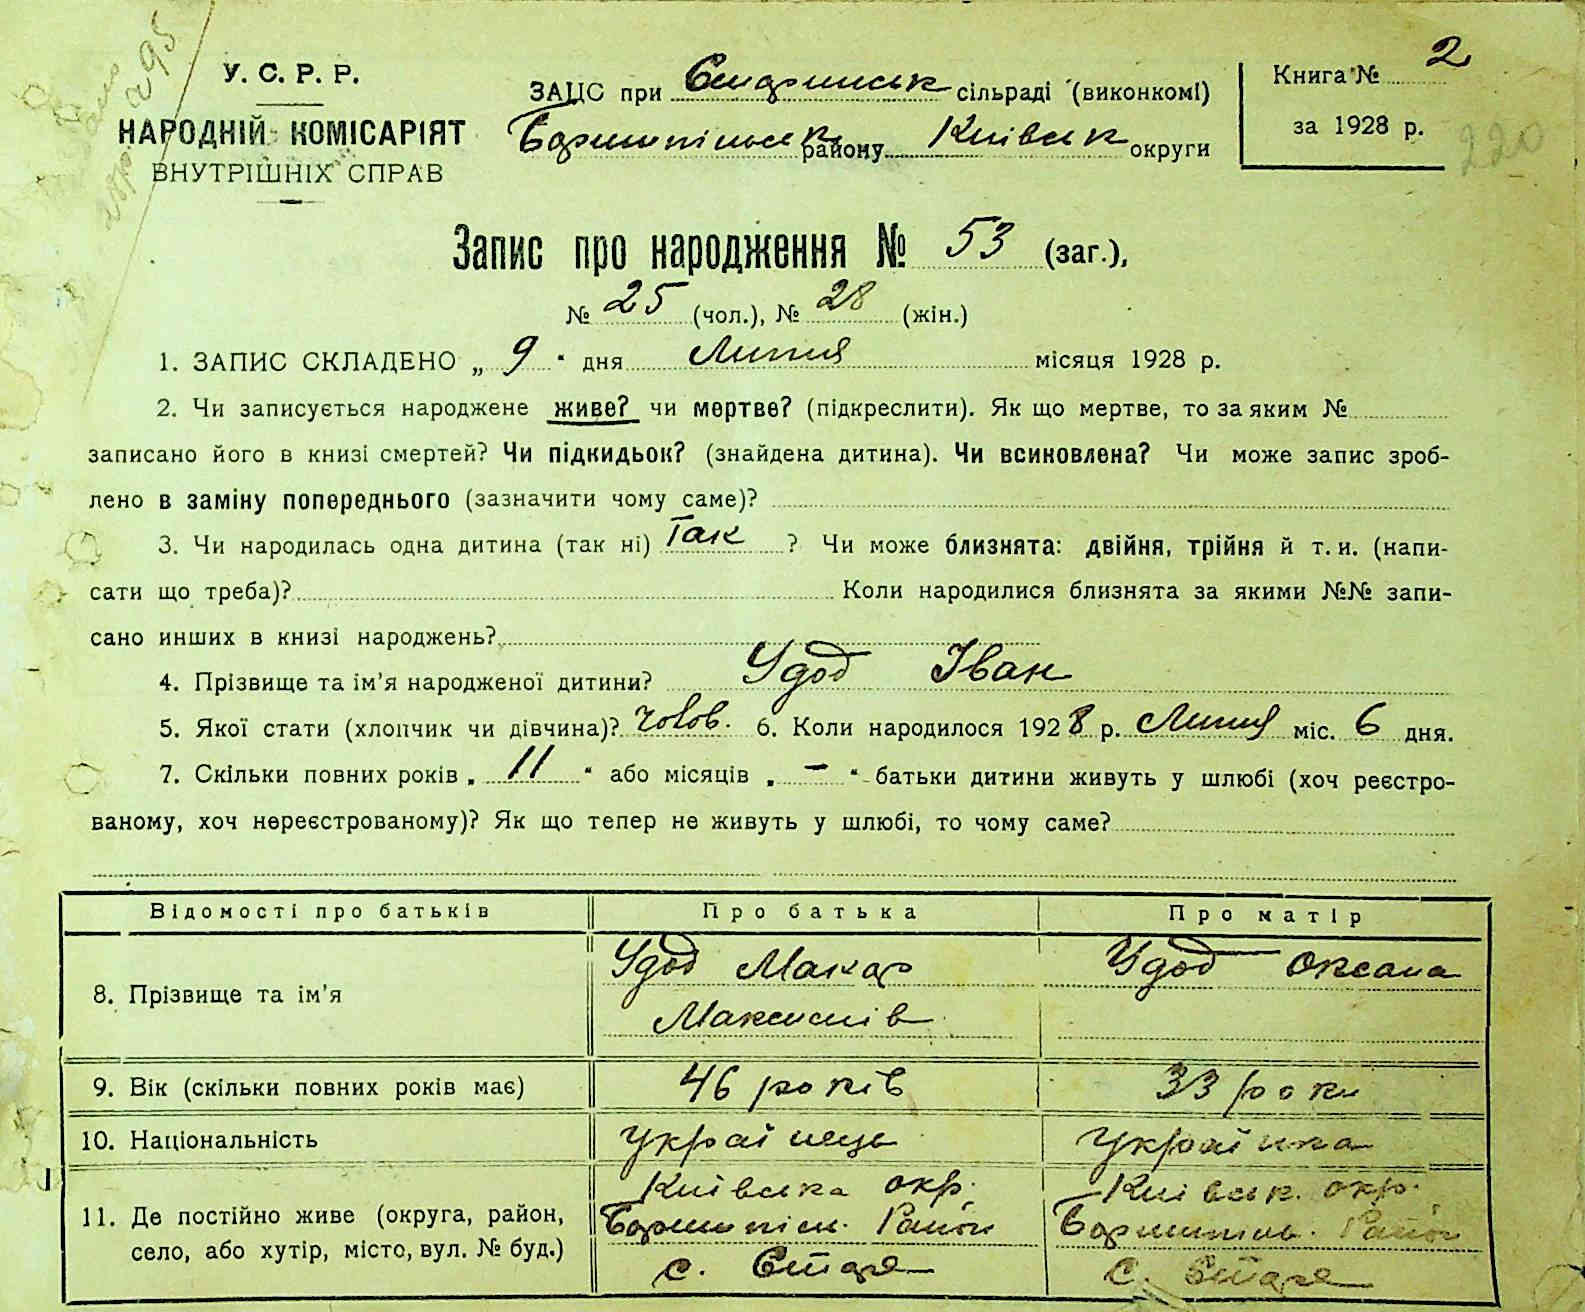 У. С. Р. Р.
НАРОДНІЙ КОМІСАРІЯТ
ВНУТРІШНІХ СПРАВ
ЗАЦС при Старинськ сільраді (виконкомі)
Баришпільськ району Київськ округи
Книга № 2
за 1928 р.
220
Запис про народження № 53 (заг.),
№ 25 (чол.), № 28 (жін.)
1. ЗАПИС СКЛАДЕНО „ 9 " дня Липня місяця 1928 р.
2. Чи записується народжене живе? чи мертве? (підкреслити). Як що мертве, то за яким №
записано його в книзі смертей? Чи підкидьок? (знайдена дитина). Чи всиновлена? Чи може запис зроб-
лено в заміну попереднього (зазначити чому саме)?
3. Чи народилась одна дитина (так ні) Так ? Чи може близнята: двійня, трійня й т. и. (напи-
сати що треба)? Коли народилися близнята за якими №№ запи-
сано инших в книзі народжень?
4. Прізвище та ім'я народженої дитини? Удод Іван
5. Якої стати (хлопчик чи дівчина)? чолов. 6. Коли народилося 1928 р. Липня міс. 6 дня.
7. Скільки повних років „ 11 " або місяців „ - " батьки дитини живуть у шлюбі (хоч реєстро-
ваному, хоч нереєстрованому)? Як що тепер не живуть у шлюбі, то чому саме?
Відомості про батьків Про батька Про матір
8. Прізвище та ім'я Удод Макар Удод Оксана
Максимів
9. Вік (скільки повних років має) 46 років 33 роки
10. Національність Українець Українка
11. Де постійно живе (округа, район, Київська окр. Київськ. окр.
село, або хутір, місто, вул. № буд.) Баришпіл. Район Баришпіль. Район
с. Старе с. Старе